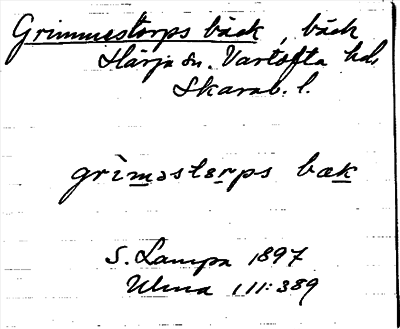 Grimmestorps bäck, bäck
Härja sn. Vartofta hd.
Skarab. l.
grìməstərps bæk
S. Lampa 1897
Ulma 111:389